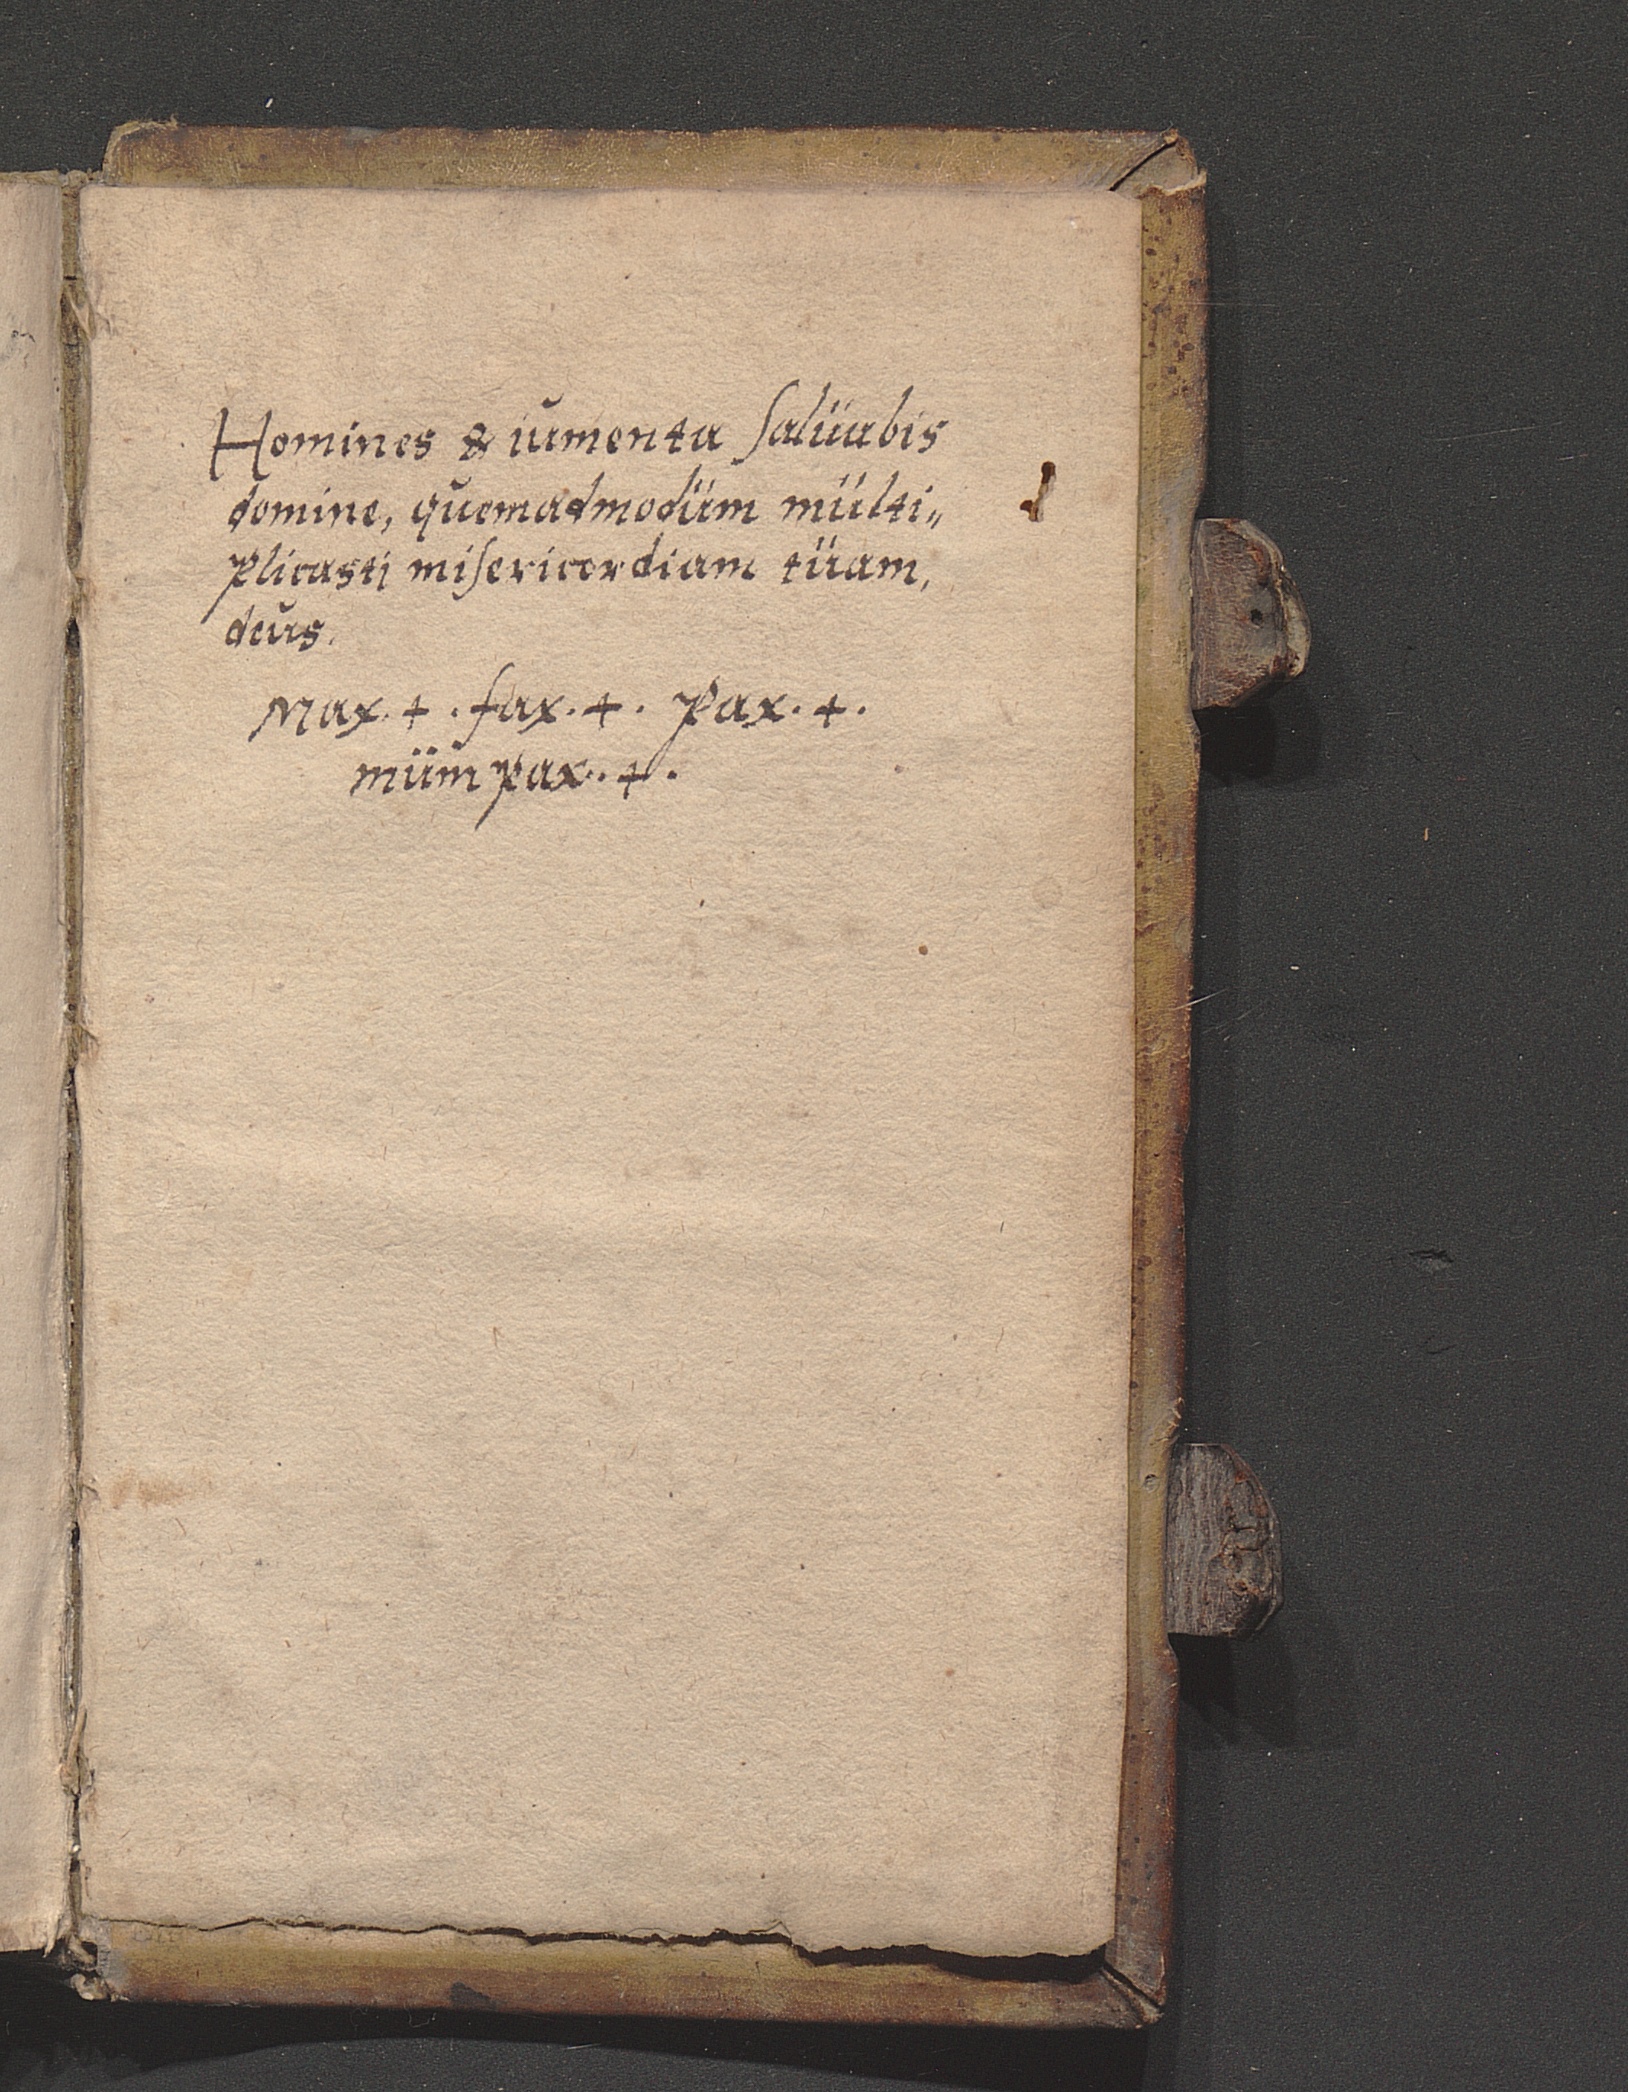 Homines & iumenta saluabis
domine, quemadmodum multi„
plicasti misericordiam tuam,
deus.
Max. +. fax. +. Pax. +.
mum pax. +.